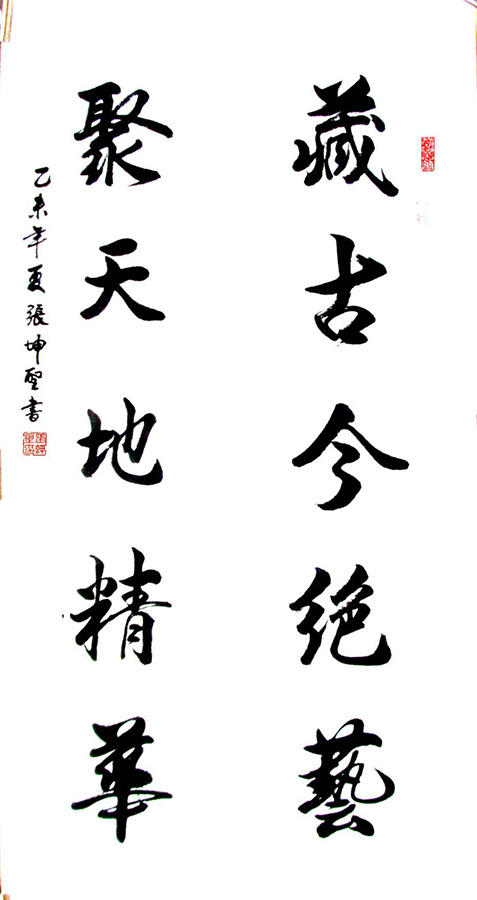 藏古今绝藝
聚天地精華
乙未年夏張坤聖書